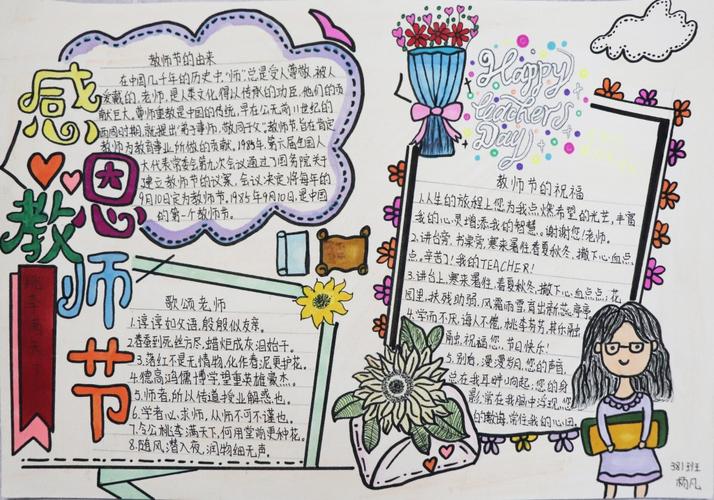 感恩教师节
桃李满天下
教师节的由来
在中国几千年的历史中,"师"总是受人尊敬,被人
爱戴的,老师,是人类文化得以传承的功臣,他们的贡
献巨大。尊师重教是中国的传统,早在公元前11世纪的
西周时期,就提出"弟子事师,敬同于父"教师节旨在肯定
教师为教育事业所做的贡献,1985年,第六届全国人
大代表常委会第九次会议通过了国务院关于
建立教师节的议案,会议决定将每年的
9月10日定为教师节,1985年9月10日,是中国
的第一个教师节。
歌颂老师
1.谆谆如父语,殷殷似友亲。
2.春蚕到死丝方尽,蜡炬成灰泪始干。
3.落红不是无情物,化作春泥更护花。
4.德高鸿儒博学,望重英雄豪杰。
5.师者,所以传道授业解惑也。
6.学者必求师,从师不可不谨也。
7.令公桃李满天下,何用堂前更种花。
8.随风潜入夜,润物细无声。
Happy
teacher's
Day
教师节的祝福
1.人生的旅程上您为我点燃希望的光芒,丰富
我的心灵增添我的智慧。谢谢您!老师。
2.讲台旁,书桌旁,寒来暑往,春夏秋冬,撒下心血点
点,辛苦了!我的TEACHER!
3.讲台上,寒来暑往,春夏秋冬,撒下心血点点;花
园里,扶残助弱,风霜雨雪,育出新蕊亭亭
4.学而不厌,诲人不倦,桃李芬芳,其乐融
融,祝福您,节日快乐!
5.别后,漫漫岁月,您的声音,
总在我耳畔响起;您的身
影,常在我脑中浮现,您
的教诲,常驻我的心田。
381班
杨凡